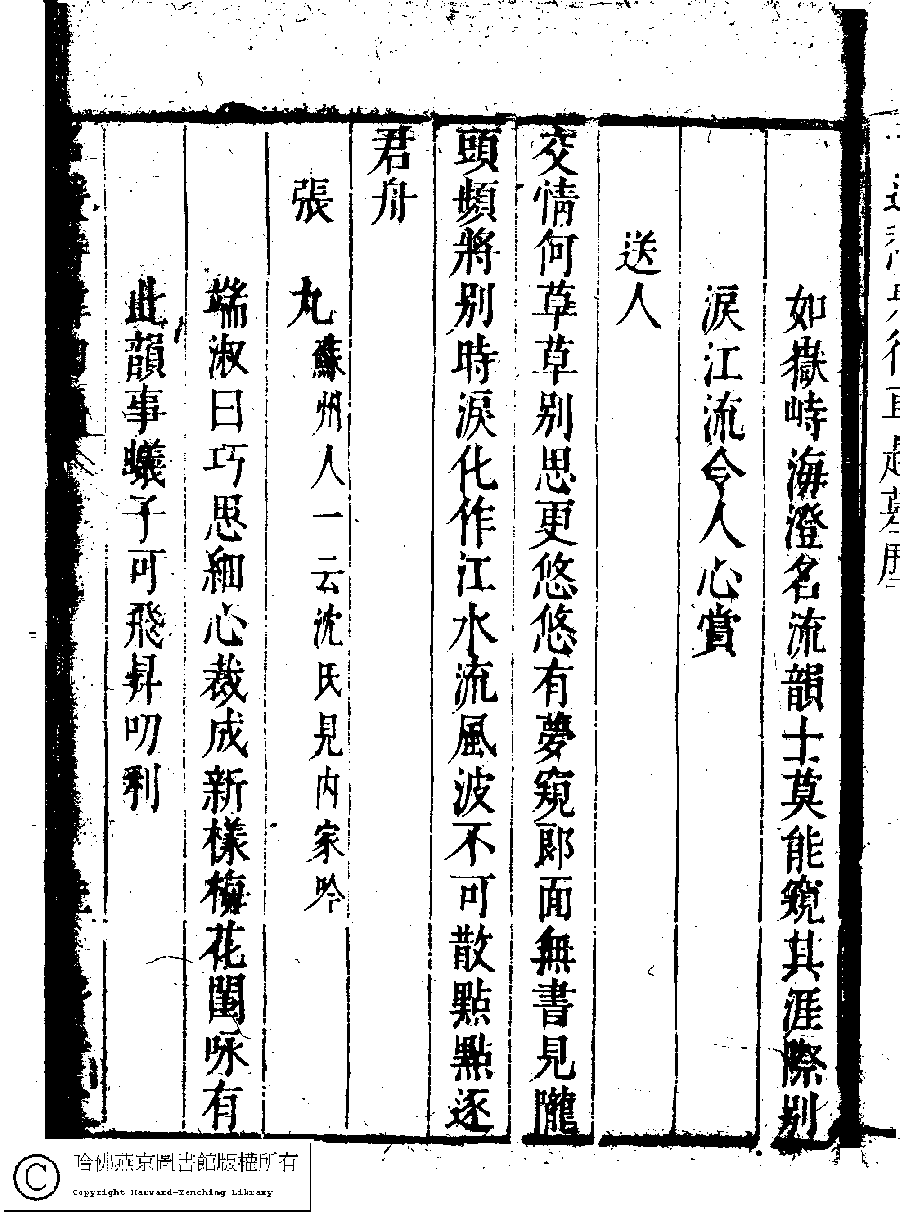 如嶽峙海澄名流韻士莫能窺其涯際别
淚江流令人心賞
送人
交情何草草别思更悠悠有夢窺郎面無書見隴
頭頻將别時淚化作江水流風波不可散點點逐
君舟
張 丸 蘇州人一云沈氏見内家吟
端淑曰巧思細心裁成新樣梅花閨咏有
此韻事蟻子可飛昇叨利
哈佛燕京圖書館版權所有
Copyright Harvard-Yenching Library